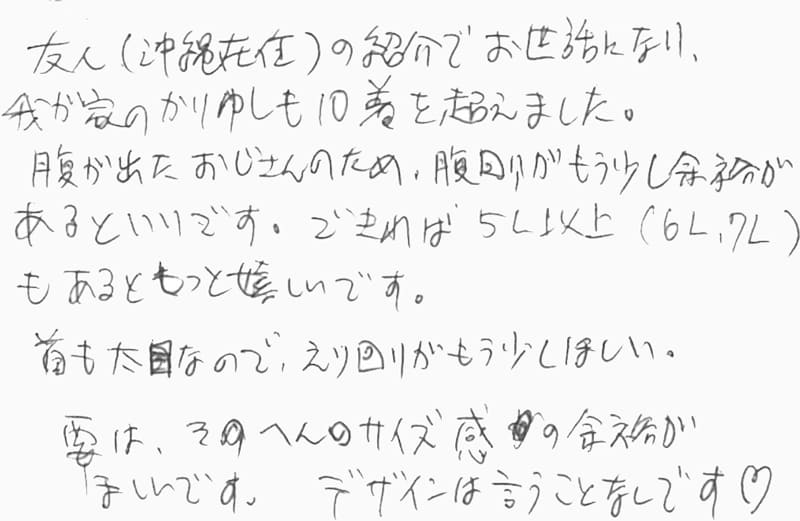 友人(沖縄在住)の紹介でお世話になり、
我が家のかりゆしも10着を超えました。
腹が出たおじさんのため、腹回りがもう少し余裕が
あるといいです。できれば5L以上(6L、7L)
もあるともっと嬉しいです。
首も太目なので、えり回りがもう少しほしい。
要は、そのへんのサイズ感の余裕が
ほしいです。 デザインは言うことなしです♡